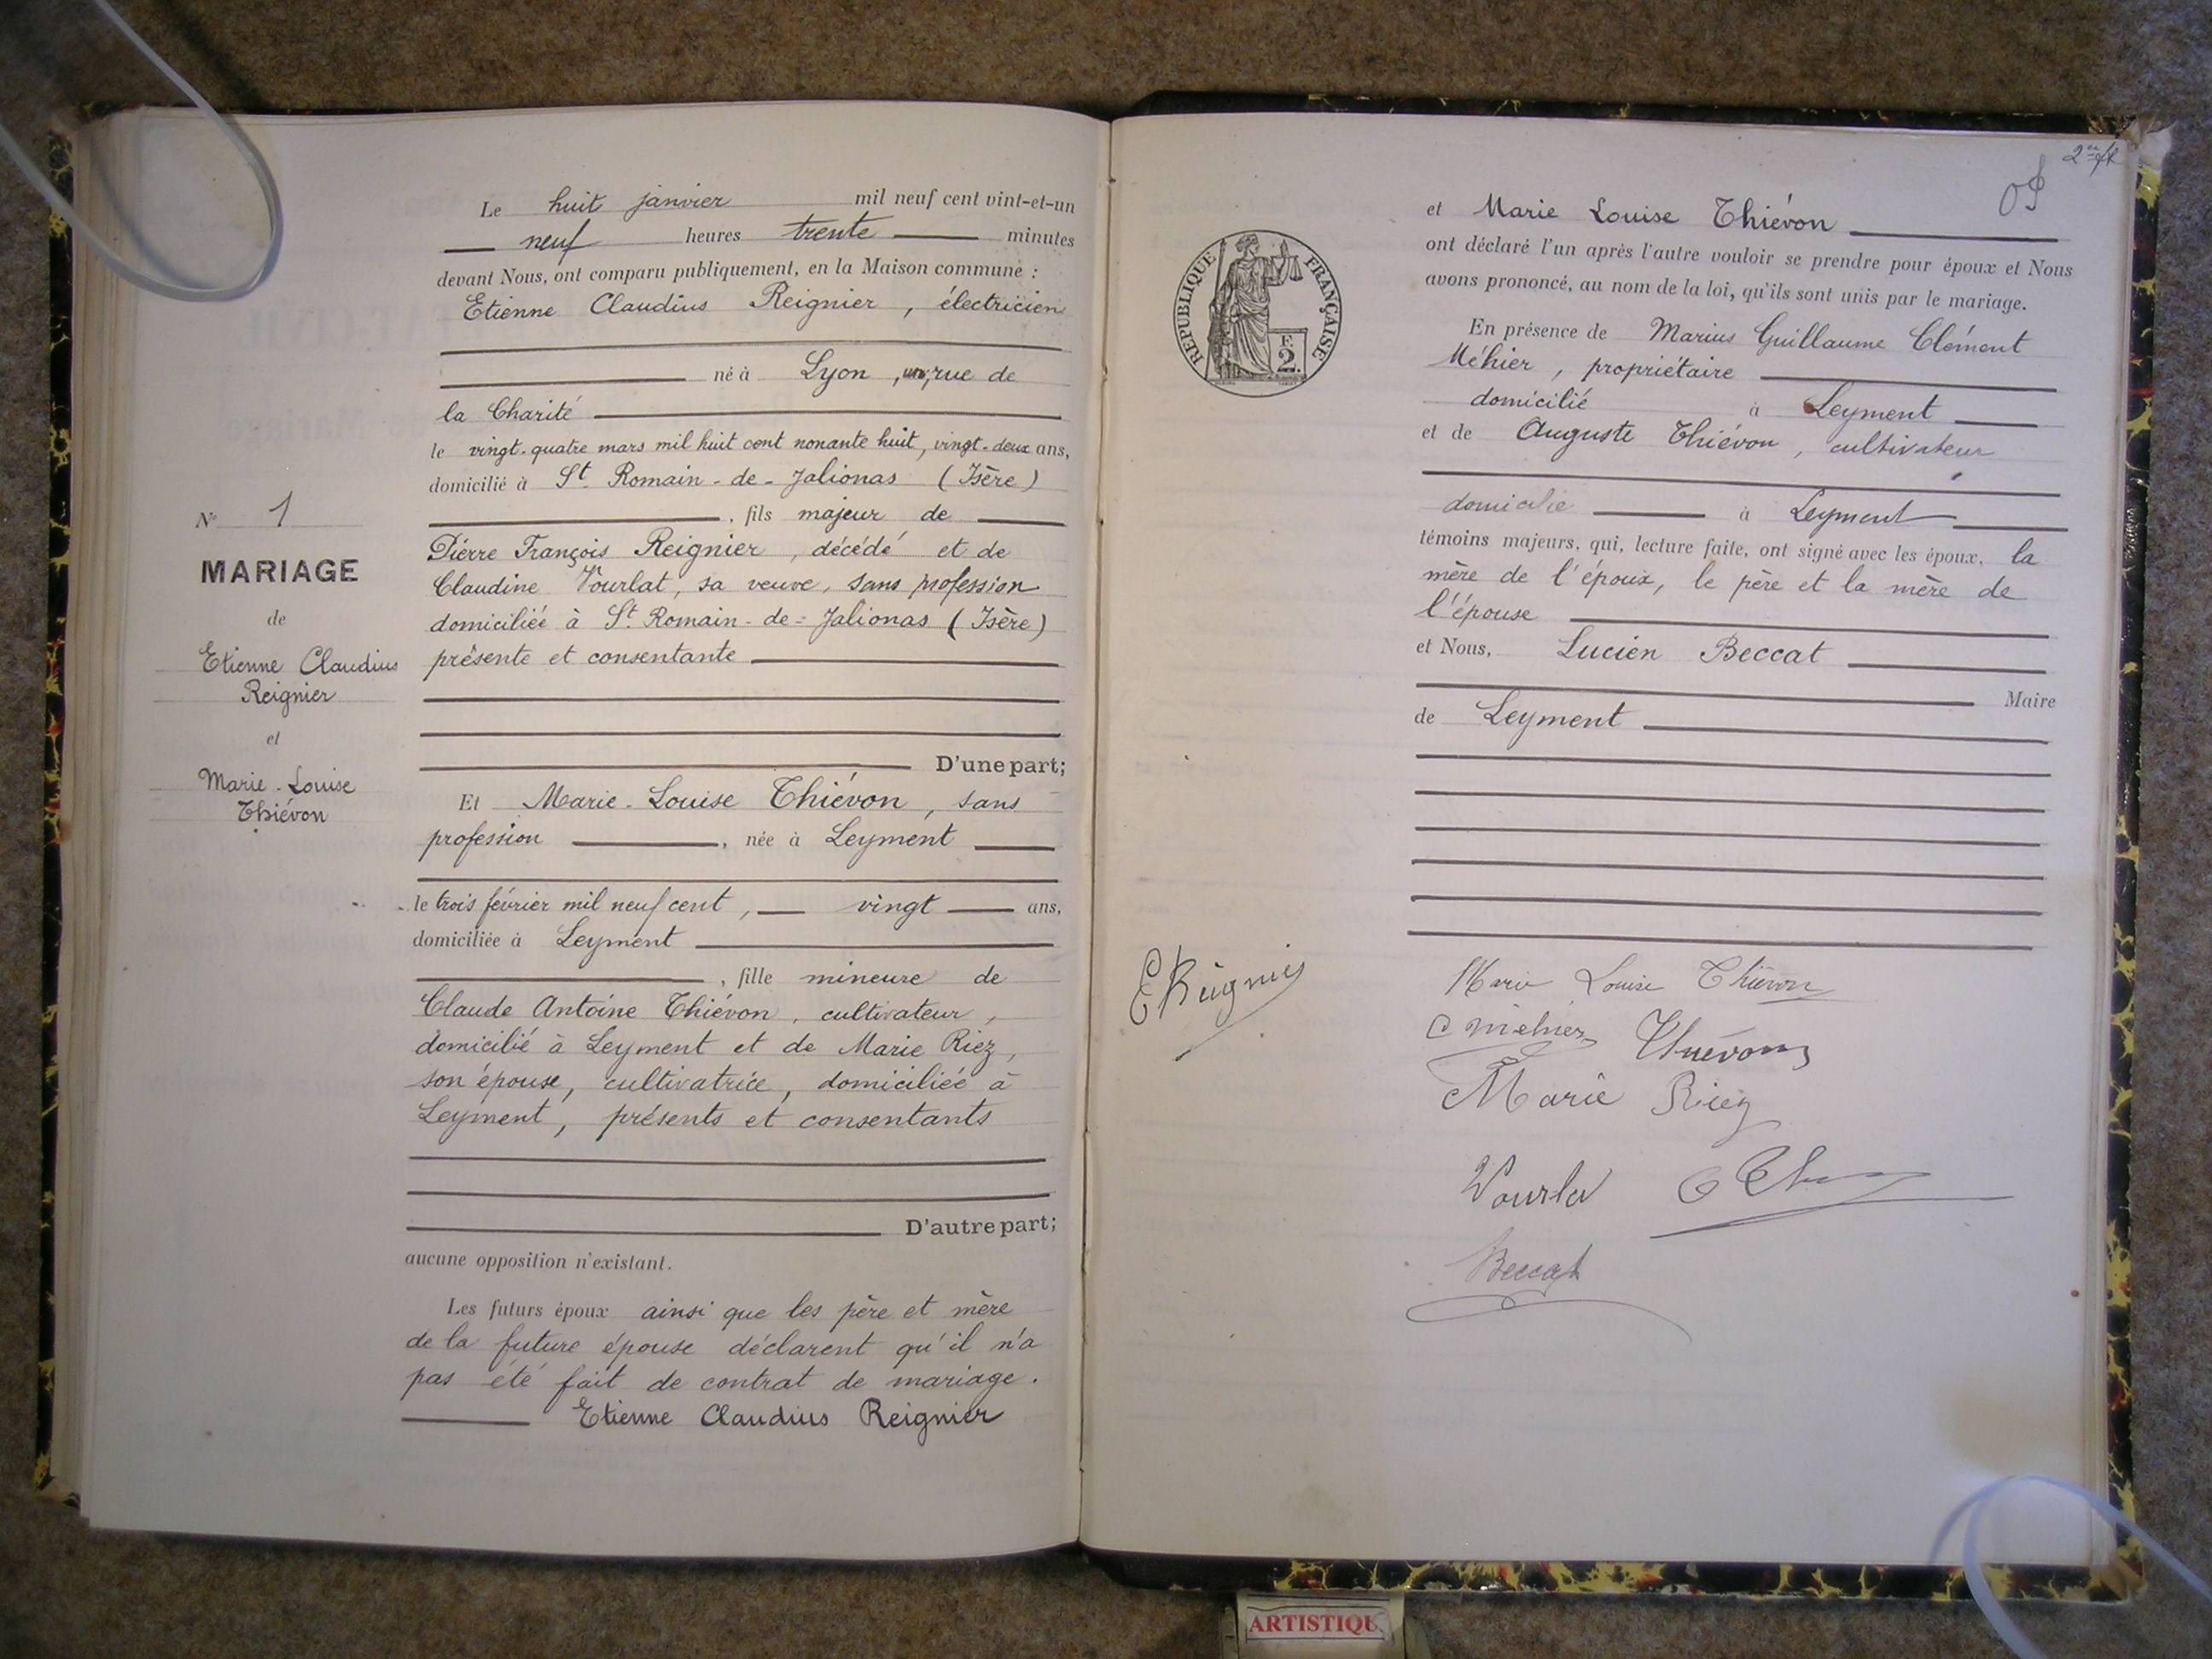 Le huit janvier mil neuf cent vint-et-un
neuf heures trente minutes
devant Nous, ont comparu publiquement, en la Maison commune :
Etienne Claudius Reignier, électricien
né à Lyon, rue de
la Charité
le vingt-quatre mars mil huit cent nonante huit, vingt-deux ans,
domicilié à St Romain-de-Jalionas (Isère)
, fils majeur de
Pierre François Reignier, décédé et de
Claudine Vourlat, sa veuve, sans profession
domiciliée à St Romain-de-Jalionas (Isère)
présente et consentante
D'une part;
Et Marie-Louise Thiévon, sans
profession, née à Leyment
le trois février mil neuf cent, vingt ans,
domiciliée à Leyment
, fille mineure de
Claude Antoine Thiévon, cultivateur,
domicilié à Leyment et de Marie Riez,
son épouse, cultivatrice, domiciliée à
Leyment, présents et consentants
D'autre part;
aucune opposition n'existant.
Les futurs époux ainsi que les père et mère
de la future épouse déclarent qu'il n'a
pas été fait de contrat de mariage.
Etienne Claudius Reignier
No 1
MARIAGE
de
Etienne Claudius
Reignier
et
Marie-Louise
Thiévon
RÉPUBLIQUE FRANÇAISE
F.
2.
et Marie Louise Thiévon
ont déclaré l'un après l'autre vouloir se prendre pour époux et Nous
avons prononcé, au nom de la loi, qu'ils sont unis par le mariage.
En présence de Marius Guillaume Clément
Méhier, propriétaire
domicilié à Leyment
et de Auguste Thiévon, cultivateur
domicilié à Leyment
témoins majeurs, qui, lecture faite, ont signé avec les époux, la
mère de l'époux, le père et la mère de
l'épouse
et Nous, Lucien Beccat
Maire
de Leyment
E Reignier
Marie Louise Thiévon
C Méhier Thiévon
Marie Riez
Vourla
Beccat
ARTISTIQU